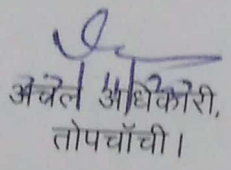 अंचल अधिकारी,
तोपचाँची।